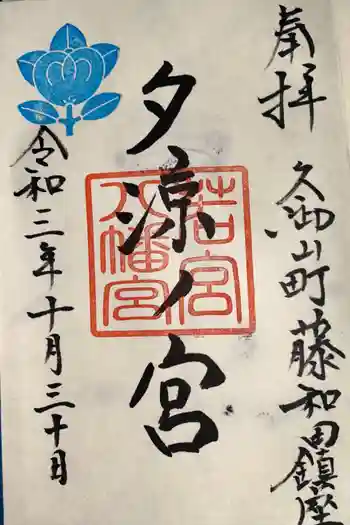 奉拝 久御山町藤和田鎮座
夕涼ノ宮
若宮
八幡宮
令和三年十月三十日